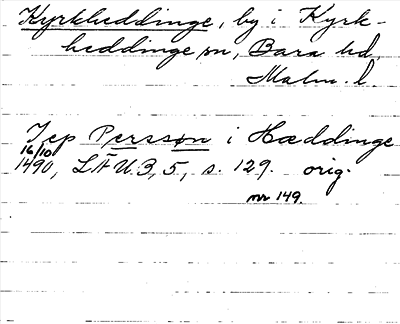 Kyrkheddinge, by i Kyrk-
heddinge sn, Bara hd,
Malm. l
Jep Perssøn i Hæddinge
16/10
1490, LÄU.3,5, s. 129. orig.
nr 149.